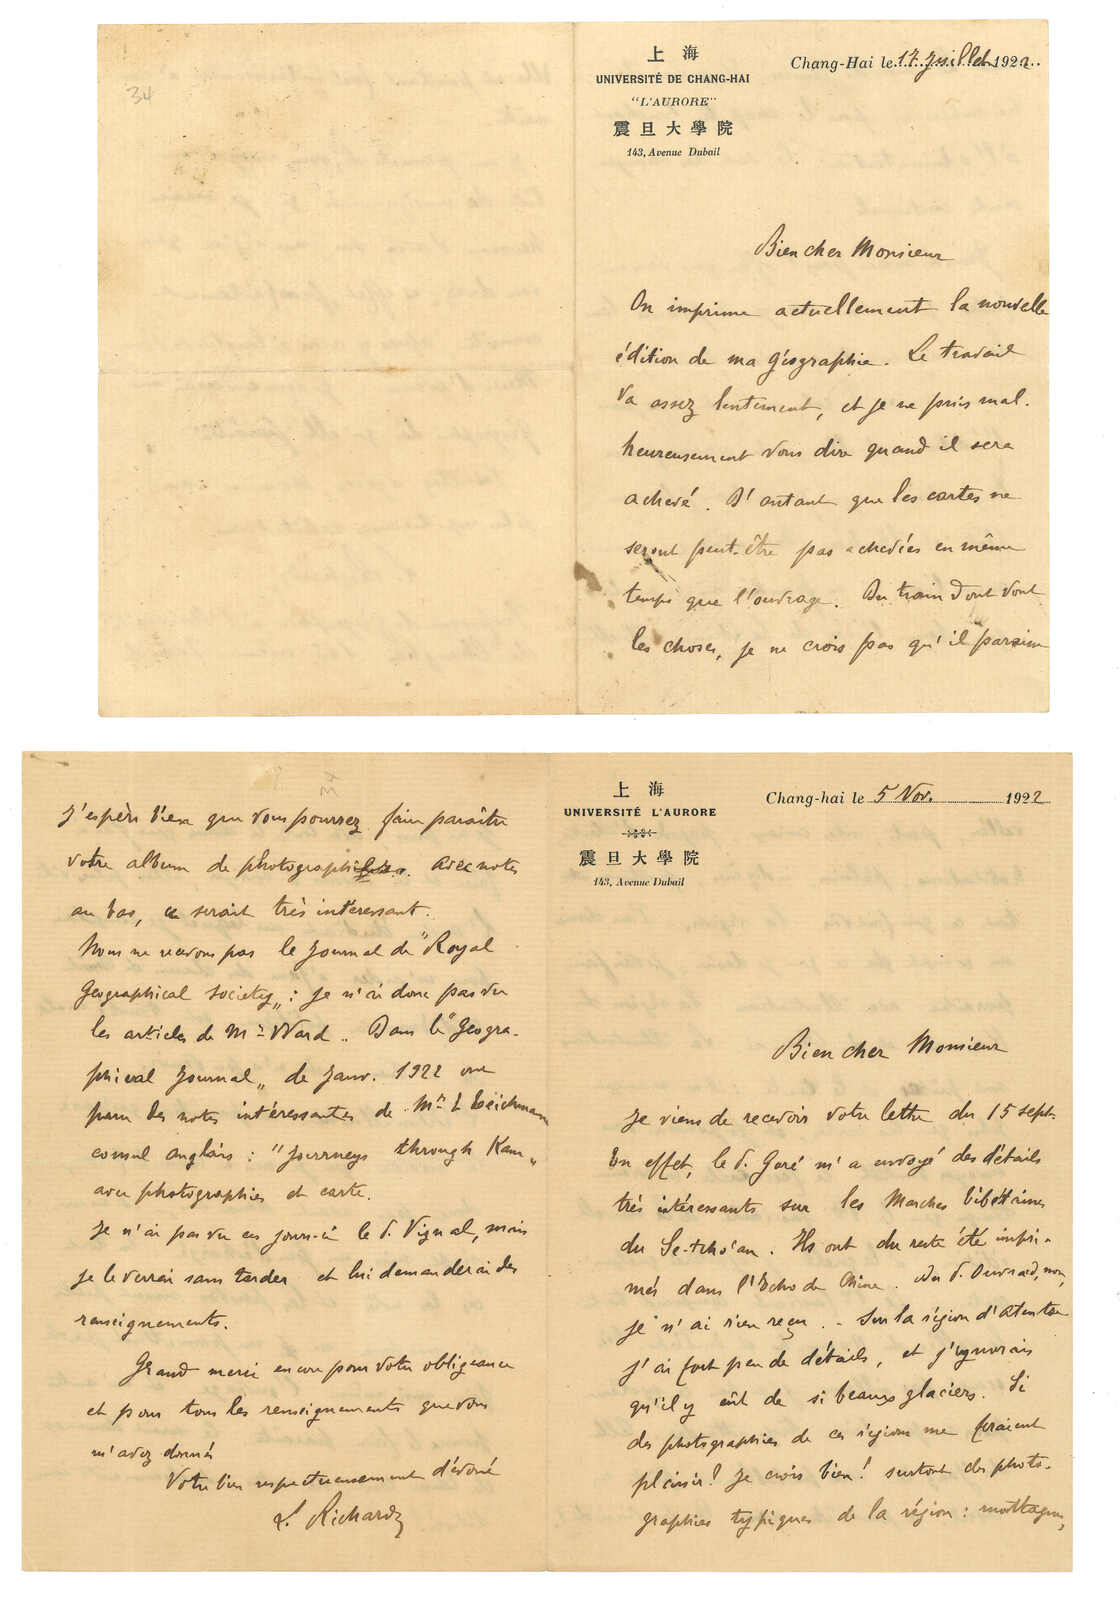 34
上海
UNIVERSITÉ DE CHANG-HAI
"L'AURORE"
震旦大學院
143, Avenue Dubail
Chang-Hai le 17 juillet 1922
Bien cher Monsieur
On imprime actuellement la nouvelle
édition de ma géographie. Le travail
va assez lentement, et je ne puis mal-
heureusement vous dire quand il sera
achevé. D'autant que les cartes ne
seront peut-être pas achevées en même
temps que l'ouvrage. Du train dont vont
les choses, je ne crois pas qu'il paraisse
34
J'espère bien que vous pourrez faire paraître
votre album de photographies. Avec notes
au bas, ce serait très intéressant.
Nous ne recevons pas le Journal de "Royal
Geographical Society" : je n'ai donc pas vu
les articles de Mr Ward. Dans le "Geogra-
phical Journal" de Janv. 1922 ont
paru des notes intéressantes de Mr Teichmann
consul anglais : "Journeys through Kam"
avec photographies et carte.
Je n'ai pas vu ces jours-ci le P. Vignal, mais
je le verrai sans tarder et lui demanderai des
renseignements.
Grand merci encore pour votre obligeance
et pour tous les renseignements que vous
m'avez donnés
Votre bien respectueusement dévoué
L. Richard
上海
UNIVERSITÉ L'AURORE
震旦大學院
143, Avenue Dubail
Chang-hai le 5 Nov. 1922
Bien cher Monsieur
Je viens de recevoir votre lettre du 15 sept.
En effet, le P. Goré m'a envoyé des détails
très intéressants sur les Marches tibétaines
du Se-tch'oan. Ils ont du reste été impri-
més dans l'Echo de Chine. Du P. Ouvrard, non,
je n'ai rien reçu. - Sur la région d'Atentse
j'ai fort peu de détails, et j'ignorais
qu'il y eût de si beaux glaciers. Si
des photographies de ces régions me feraient
plaisir ! Je crois bien ! surtout des photo-
graphies typiques de la région : montagnes,